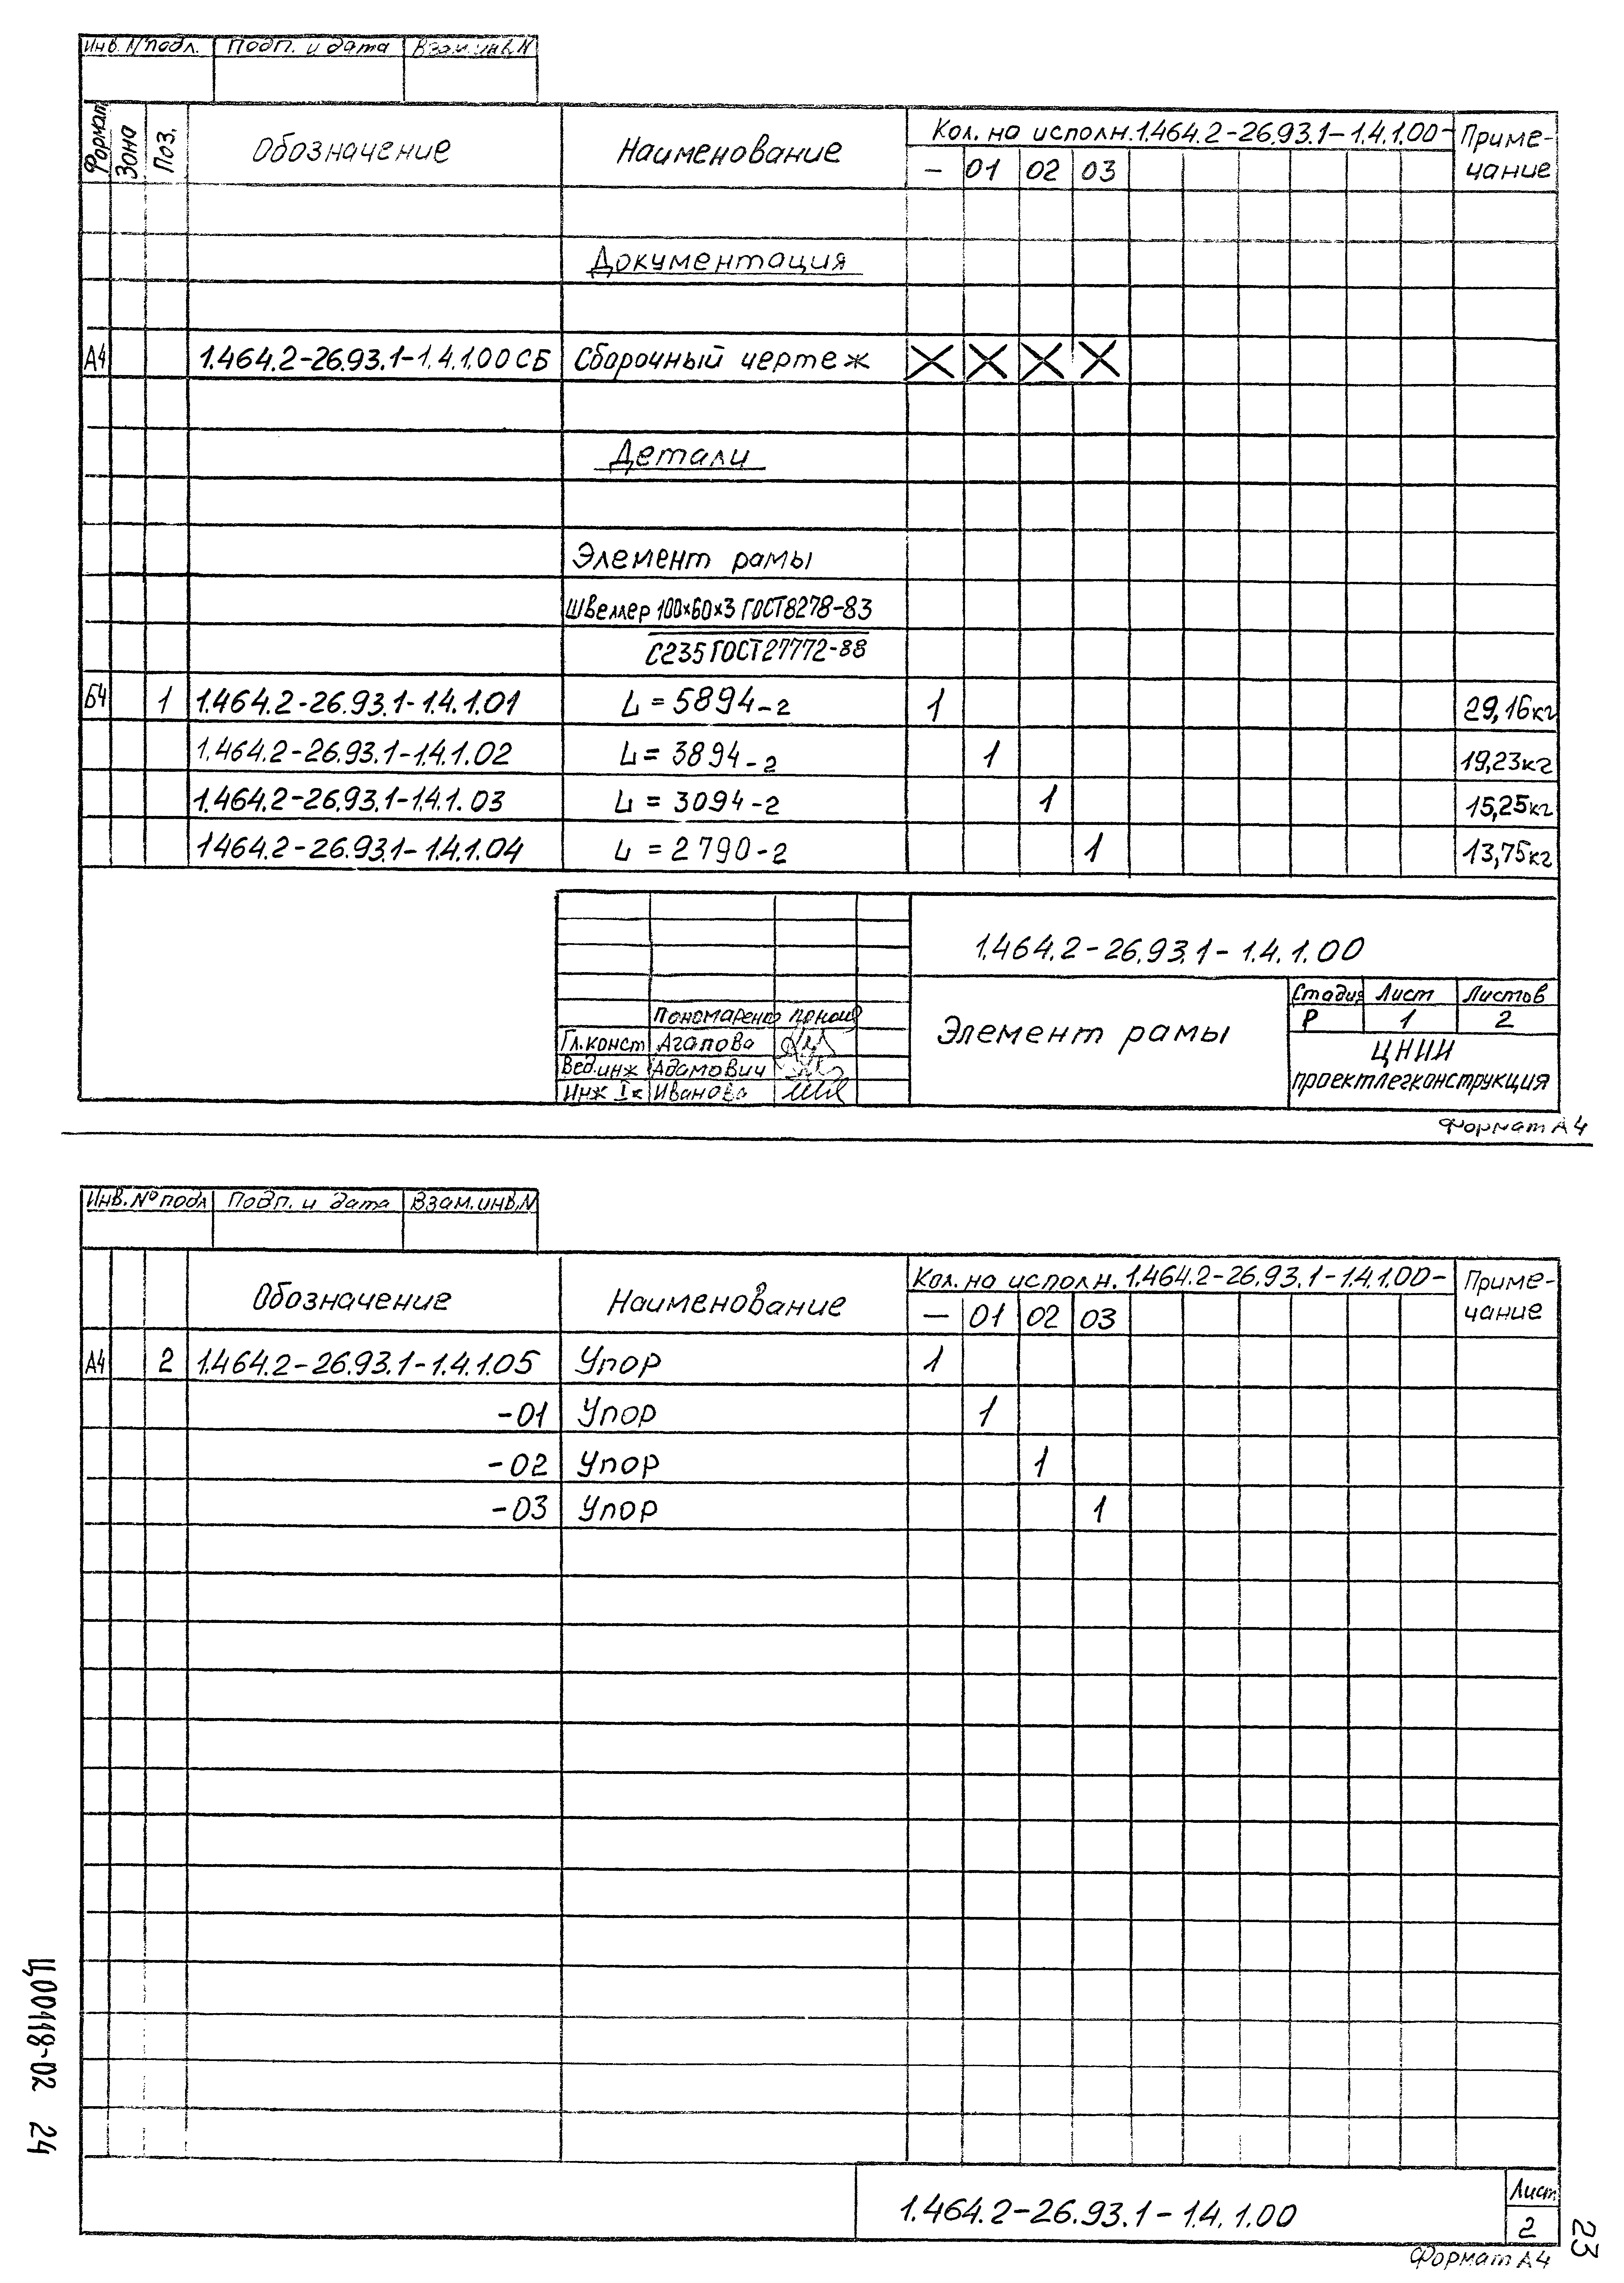 Инв. N подл. Подп. и дата Взам.инв.N
Формат Зона Поз. Обозначение Наименование Кол. на исполн. 1.464.2-26.93.1-1.4.1.00- Приме-
чание
— 01 02 03
Документация
А4 1.464.2-26.93.1-1.4.1.00 СБ Сборочный чертеж X X X X
Детали
Элемент рамы
Швеллер 100х60х3 ГОСТ 8278-83
С235 ГОСТ 27772-88
Б4 1 1.464.2-26.93.1-1.4.1.01 L = 5894-2 1 29,16кг
1.464.2-26.93.1-1.4.1.02 L = 3894-2 1 19,23кг
1.464.2-26.93.1-1.4.1.03 L = 3094-2 1 15,25кг
1464.2-26.93.1-1.4.1.04 L = 2790-2 1 13,75кг
1.464.2-26.93.1-1.4.1.00
Элемент рамы
Стадия Лист Листов
Р 1 2
ЦНИИ
проектлегконструкция
Пономаренк
Гл.конст Агапова
Вед.инж Адамович
Инж Iк Иванова
Формат А4
Инв. № подл Подп. и дата Взам.инв.N
Обозначение Наименование Кол. на исполн. 1.464.2-26.93.1-1.4.1.00- Приме-
чание
— 01 02 03
А4 2 1.464.2-26.93.1-1.4.1.05 Упор 1
-01 Упор 1
-02 Упор 1
-03 Упор 1
1.464.2-26.93.1-1.4.1.00
Лист
2
Формат А4
Ц00118-02 24
23